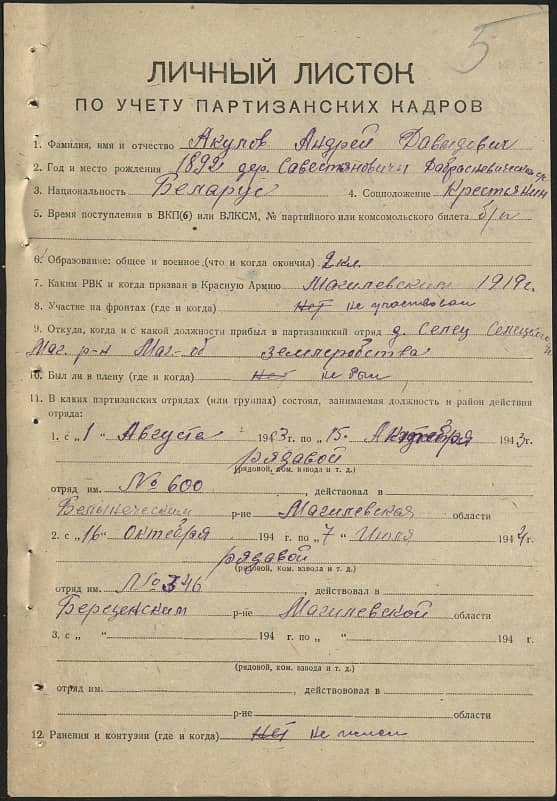 5
ЛИЧНЫЙ ЛИСТОК
ПО УЧЕТУ ПАРТИЗАНСКИХ КАДРОВ
1. Фамилия, имя и отчество Акулов Андрей Давыдович
2. Год и место рождения 1892 дер. Савестьяновичи
3. Национальность Беларус 4. Соцположение Крестьянин
5. Время поступления в ВКП(б) или ВЛКСМ, № партийного или комсомольского билета б/п
6. Образование: общее и военное (что и когда окончил) 2 кл.
7. Каким РВК и когда призван в Красную Армию Магилевским 1919 г.
8. Участие на фронтах (где и когда) Нет не участвовал
9. Откуда, когда и с какой должности прибыл в партизанский отряд д. Селец
Маг. р-н Маг-об земляробства
10. Был ли в плену (где и когда) Нет не был
11. В каких партизанских отрядах (или группах) состоял, занимаемая должность и район действия
отряда:
1. с „1" Августа 1943 г. по „15. Актября 1943 г.
рядавой
(рядовой, ком. взвода и т. д.)
отряд им. № 600, действовал в
Белыническим р-не Магилевская области
2. с „16" Октября 1943 г. по „7" Июля 1944 г.
рядавой
(рядовой, ком. взвода и т. д.)
отряд им. № 346 действовал в
р-не Магилевской области
3. с „ " 194 г. по „ " 194 г.
(рядовой, ком. взвода и т. д.)
отряд им., действововал в
р-не области
12. Ранения и контузии (где и когда) Нет не имел